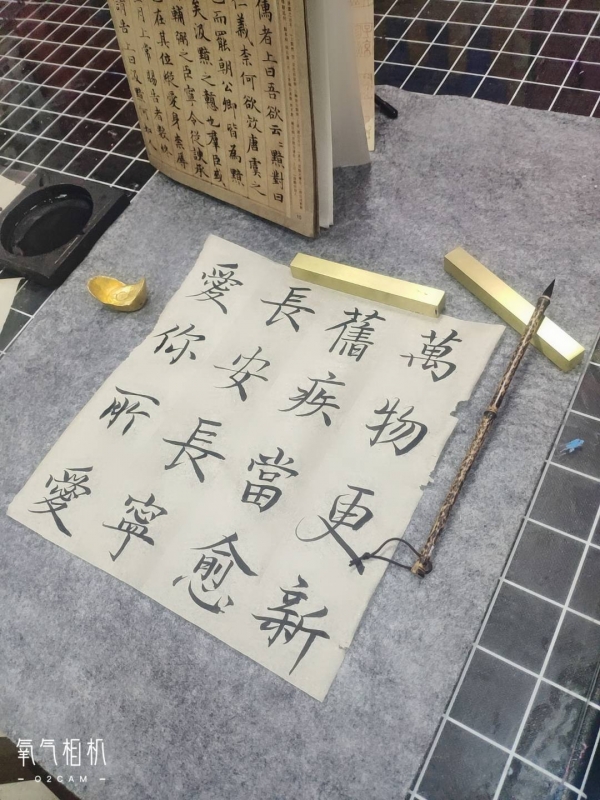 儒者上曰吾欲云云黯對曰
仁義柰何欲效唐虞之
而罷朝公卿皆為黯
矣汲黯之戇也羣臣或
輔弼之臣寧令從諛承
在其位縱愛身柰辱
月上常賜告者數終
告上曰汲黯何如人
萬物更新
舊疾當愈
長安長寧
愛你所愛
氧气相机
O2CAM